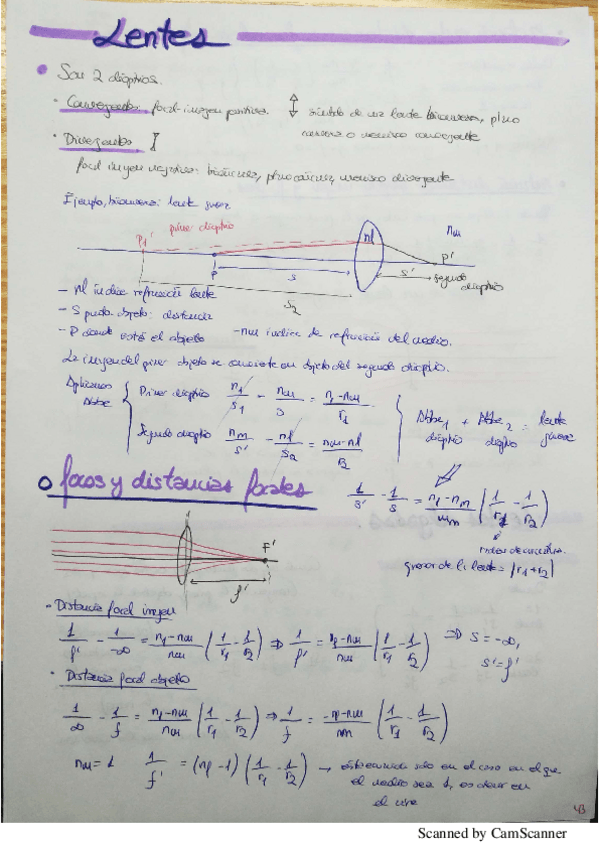 Lentes
Son 2 dioptrios.
· Convergentes: focal imagen positiva. símbolo de una lente biconvexa, plano
convexa o menisco convergente
· Divergentes
focal imagen negativa: bicóncava, planocóncava, menisco divergente
Ejemplo, biconvexa: lente gruesa
primer dioptrio
P1' nl nm
P s s' P'
segundo
dioptrio
S2
- nl índice refracción lente
- S punto objeto: distancia
- P donde está el objeto - nm índice de refracción del medio.
La imagen del primer objeto se convierte en objeto del segundo dioptrio.
Aplicamos
Abbe
Primer dioptrio n1/s1' - nm/s = n1-nm/r1
Segundo dioptrio nm/s' - nl/s2 = nm-nl/r2
Abbe1 + Abbe2 = lente
dioptrio dioptrio gruesa
focos y distancias focales
1/s' - 1/s = n1-nm/nm (1/r1 - 1/r2)
radios de curvatura.
grosor de la lente = |r1+r2|
F'
f'
· Distancia focal imagen
1/f' - 1/-∞ = n1-nm/nm (1/r1 - 1/r2) ⇒ 1/f' = nl-nm/nm (1/r1 - 1/r2) ⇒ S = -∞,
s'=f'
· Distancia focal objeto
1/∞ - 1/f = n1-nm/nm (1/r1 - 1/r2) ⇒ 1/f = -nl-nm/nm (1/r1 - 1/r2)
nm=1 1/f' = (nl-1) (1/r1 - 1/r2) → solo en el caso en el que
el medio sea 1, es decir en
el aire
43
Scanned by CamScanner